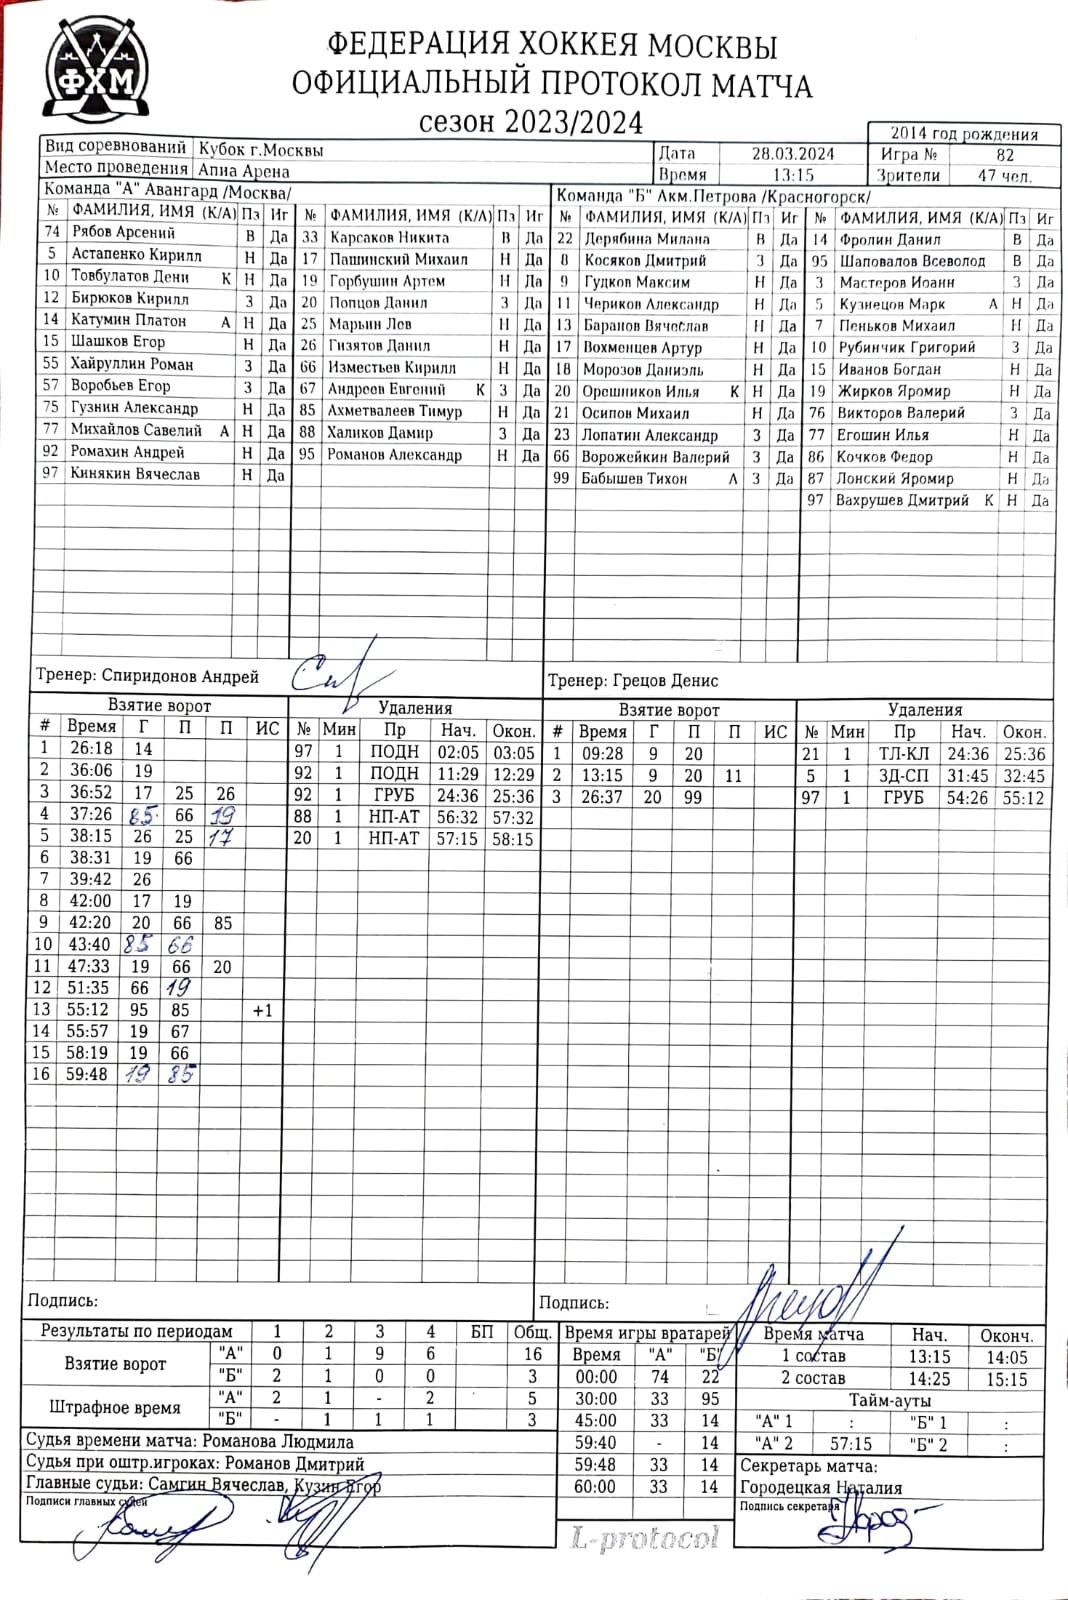 ФХМ
ФЕДЕРАЦИЯ ХОККЕЯ МОСКВЫ
ОФИЦИАЛЬНЫЙ ПРОТОКОЛ МАТЧА
сезон 2023/2024
2014 год рождения
Вид соревнований Кубок г.Москвы Дата 28.03.2024 Игра № 82
Место проведения Апиа Арена Время 13:15 Зрители 47 чел.
Команда "А" Авангард /Москва/ Команда "Б" Акм.Петрова /Красногорск/
№ ФАМИЛИЯ, ИМЯ (К/А) Пз Иг № ФАМИЛИЯ, ИМЯ (К/А) Пз Иг № ФАМИЛИЯ, ИМЯ (К/А) Пз Иг № ФАМИЛИЯ, ИМЯ (К/А) Пз Иг
74 Рябов Арсений В Да 33 Карсаков Никита В Да 22 Дерябина Милана В Да 14 Фролин Данил В Да
5 Астапенко Кирилл Н Да 17 Пашинский Михаил Н Да 8 Косяков Дмитрий З Да 95 Шаповалов Всеволод В Да
10 Товбулатов Дени К Н Да 19 Горбушин Артем Н Да 9 Гудков Максим Н Да 3 Мастеров Иоанн З Да
12 Бирюков Кирилл З Да 20 Попцов Данил З Да 11 Чериков Александр Н Да 5 Кузнецов Марк А Н Да
14 Катумин Платон А Н Да 25 Марьин Лев Н Да 13 Баранов Вячеслав Н Да 7 Пеньков Михаил Н Да
15 Шашков Егор Н Да 26 Гизятов Данил Н Да 17 Вохменцев Артур Н Да 10 Рубинчик Григорий З Да
55 Хайруллин Роман З Да 66 Изместьев Кирилл Н Да 18 Морозов Даниэль Н Да 15 Иванов Богдан Н Да
57 Воробьев Егор З Да 67 Андреев Евгений К З Да 20 Орешников Илья К Н Да 19 Жирков Яромир Н Да
75 Гузнин Александр Н Да 85 Ахметвалеев Тимур Н Да 21 Осипов Михаил Н Да 76 Викторов Валерий З Да
77 Михайлов Савелий А Н Да 88 Халиков Дамир З Да 23 Лопатин Александр З Да 77 Егошин Илья Н Да
92 Ромахин Андрей Н Да 95 Романов Александр Н Да 66 Ворожейкин Валерий З Да 86 Кочков Федор Н Да
97 Кинякин Вячеслав Н Да 99 Бабышев Тихон А З Да 87 Лонский Яромир Н Да
97 Вахрушев Дмитрий К Н Да
Тренер: Спиридонов Андрей Тренер: Грецов Денис
Взятие ворот Удаления Взятие ворот Удаления
# Время Г П П ИС № Мин Пр Нач. Окон. # Время Г П П ИС № Мин Пр Нач. Окон.
1 26:18 14 97 1 ПОДН 02:05 03:05 1 09:28 9 20 21 1 ТЛ-КЛ 24:36 25:36
2 36:06 19 92 1 ПОДН 11:29 12:29 2 13:15 9 20 11 5 1 ЗД-СП 31:45 32:45
3 36:52 17 25 26 92 1 ГРУБ 24:36 25:36 3 26:37 20 99 97 1 ГРУБ 54:26 55:12
4 37:26 85 66 19 88 1 НП-АТ 56:32 57:32
5 38:15 26 25 17 20 1 НП-АТ 57:15 58:15
6 38:31 19 66
7 39:42 26
8 42:00 17 19
9 42:20 20 66 85
10 43:40 85 66
11 47:33 19 66 20
12 51:35 66 19
13 55:12 95 85 +1
14 55:57 19 67
15 58:19 19 66
16 59:48 19 85
Подпись: Подпись:
Результаты по периодам 1 2 3 4 БП Общ. Время игры вратарей Время матча Нач. Оконч.
Взятие ворот "А" 0 1 9 6 16 Время "А" "Б" 1 состав 13:15 14:05
"Б" 2 1 0 0 3 00:00 74 22 2 состав 14:25 15:15
Штрафное время "А" 2 1 - 2 5 30:00 33 95 Тайм-ауты
"Б" - 1 1 1 3 45:00 33 14 "А" 1 : "Б" 1 :
Судья времени матча: Романова Людмила 59:40 - 14 "А" 2 57:15 "Б" 2 :
Судья при оштр.игроках: Романов Дмитрий 59:48 33 14 Секретарь матча:
Главные судьи: Самгин Вячеслав, Кузин Егор 60:00 33 14 Городецкая Наталия
Подписи главных судей Подпись секретаря
L-protocol